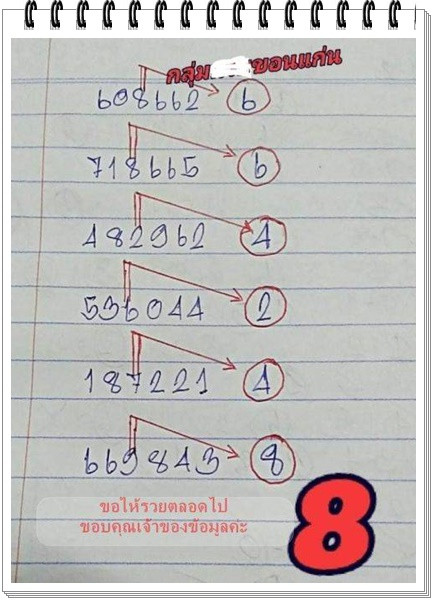 กลุ่ม ขอนแก่น
608662 6
718665 6
482962 4
536044 2
187221 4
669843 8
ขอให้รวยตลอดไป
ขอบคุณเจ้าของข้อมูลค่ะ
8